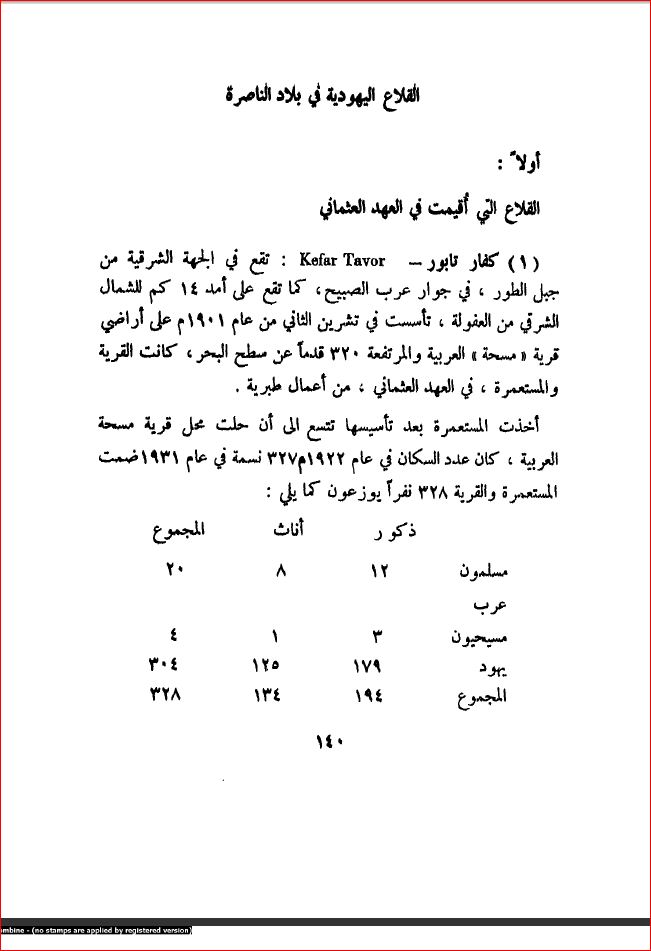 القلاع اليهودية في بلاد الناصرة
أولاً :
القلاع التي أُقيمت في العهد العثماني
(١) كفار تابور – Kefar Tavor : تقع في الجهة الشرقية من
جبل الطور ، في جوار عرب الصبيح، كما تقع على أمد ١٤ كم للشمال
الشرقي من العفولة ، تأسست في تشرين الثاني من عام ١٩٠١م على أراضي
قرية « مسحة » العربية والمرتفعة ٣٢٠ قدماً عن سطح البحر ، كانت القرية
والمستعمرة ، في العهد العثماني ، من أعمال طبرية .
أخذت المستعمرة بعد تأسيسها تتسع الى أن حلت محل قرية مسحة
العربية ، كان عدد السكان في عام ١٩٢٢م٣٢٧ نسمة في عام ١٩٣١ضمت
المستعمرة والقرية ٣٢٨ نفراً يوزعون كما يلي :
ذكور أناث المجموع
مسلمون ١٢ ٨ ٢٠
عرب
مسيحيون ٣ ١ ٤
يهود ١٧٩ ١٢٥ ٣٠٤
المجموع ١٩٤ ١٣٤ ٣٢٨
١٤٠
ombine - (no stamps are applied by registered version)